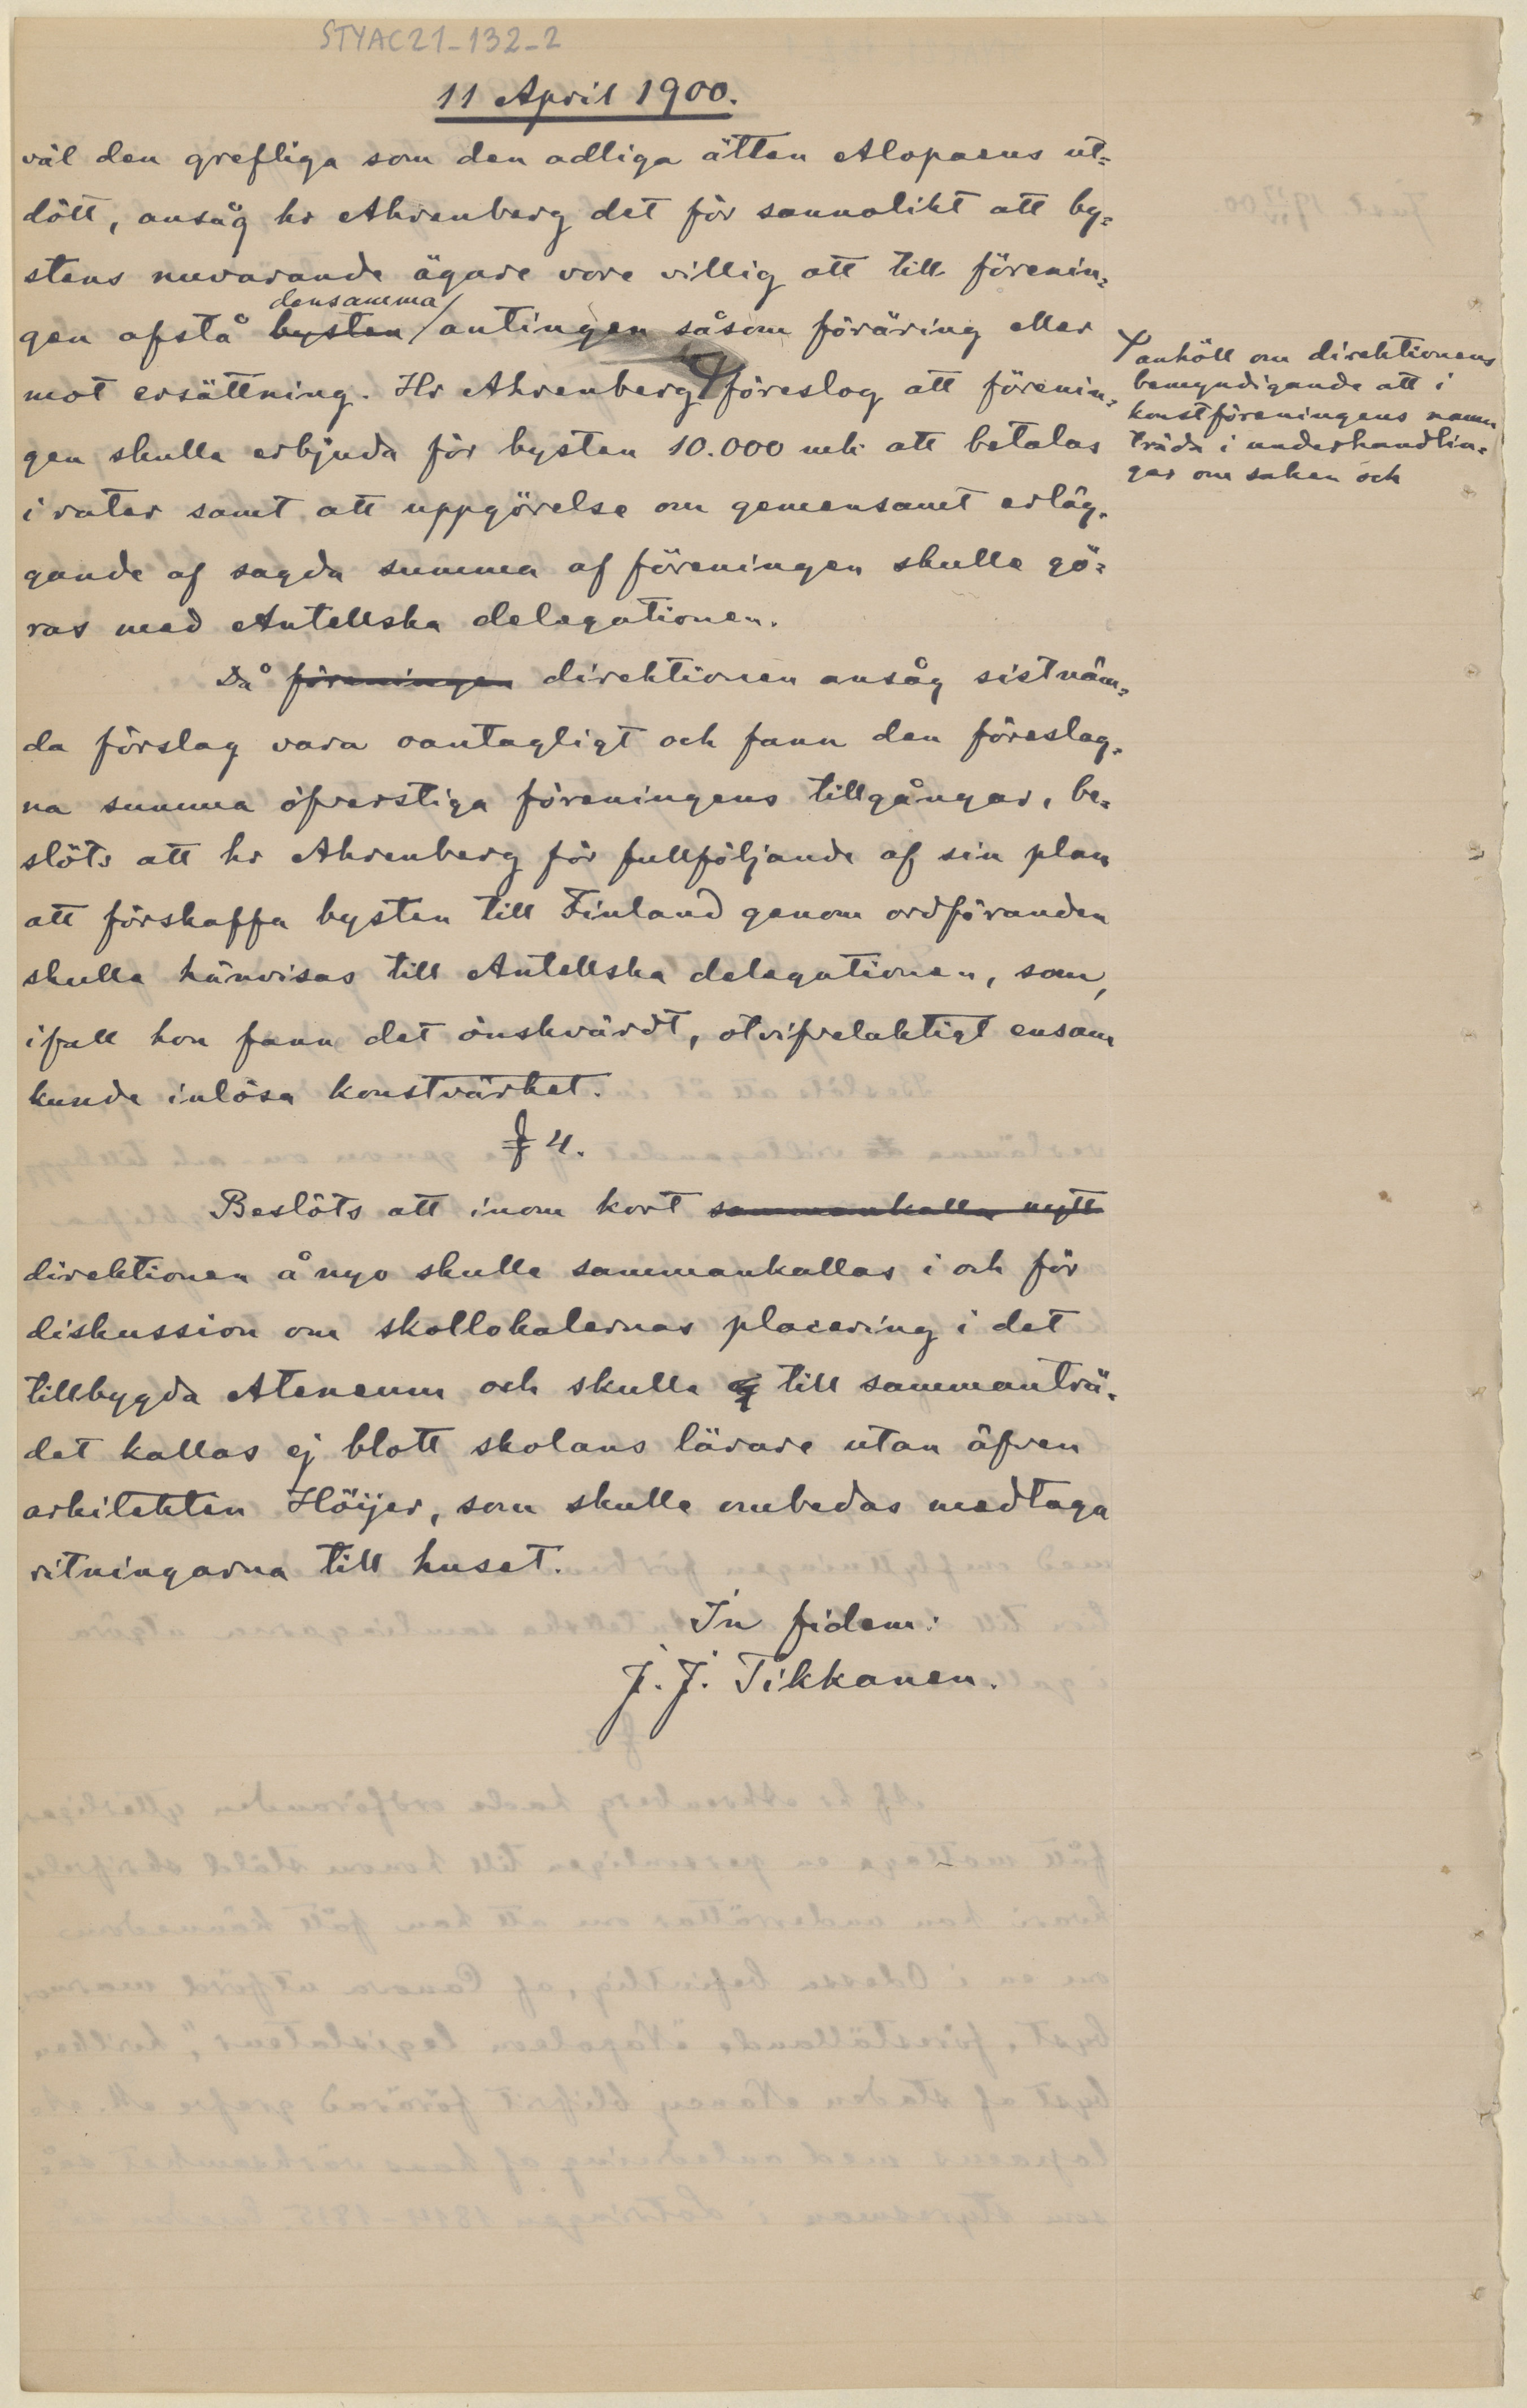 STYAC21-132-2
11 April 1900.
väl den grefliga som den adliga ätten Alopaeus ut-
dött, ansåg hr Ahrenberg det för sannolikt att by-
stens nuvarande ägare vore villig att till förenin-
densamma
gen afstå bysten antingen såsom föräring eller
mot ersättning. Hr Ahrenberg föreslog att förenin-
gen skulle erbjuda för bysten 10.000 mk att betalas
i rater samt att uppgörelse om gemensamt erläg-
gande af sagda summa af föreningen skulle gö-
ras med Antellska delegationen.
anhöll om direktionens
bemyndigande att i
konstföreningens namn
träda i underhandlin-
gar om saken och
Då föreningen direktionen ansåg sistnäm-
da förslag vara oantagligt och fann den föreslag-
na summa öfverstiga föreningens tillgångar, be-
slöts att hr Ahrenberg för fullföljande af sin plan
att förskaffa bysten till Finland genom ordföranden
skulle hänvisas till Antellska delegationen, som,
ifall hon fann det önskvärdt, otvifvelaktigt ensam
kunde inlösa konstvärket.
§ 4.
Beslöts att inom kort sammankalla nytt
direktionen å nyo skulle sammankallas i och för
diskussion om skollokalernas placering i det
tillbygda Ateneum och skulle till sammanträ-
det kallas ej blott skolans lärare utan äfven
arkitekten Höijer, som skulle ombedas medtaga
ritningarna till huset.
In fidem:
J. J. Tikkanen.